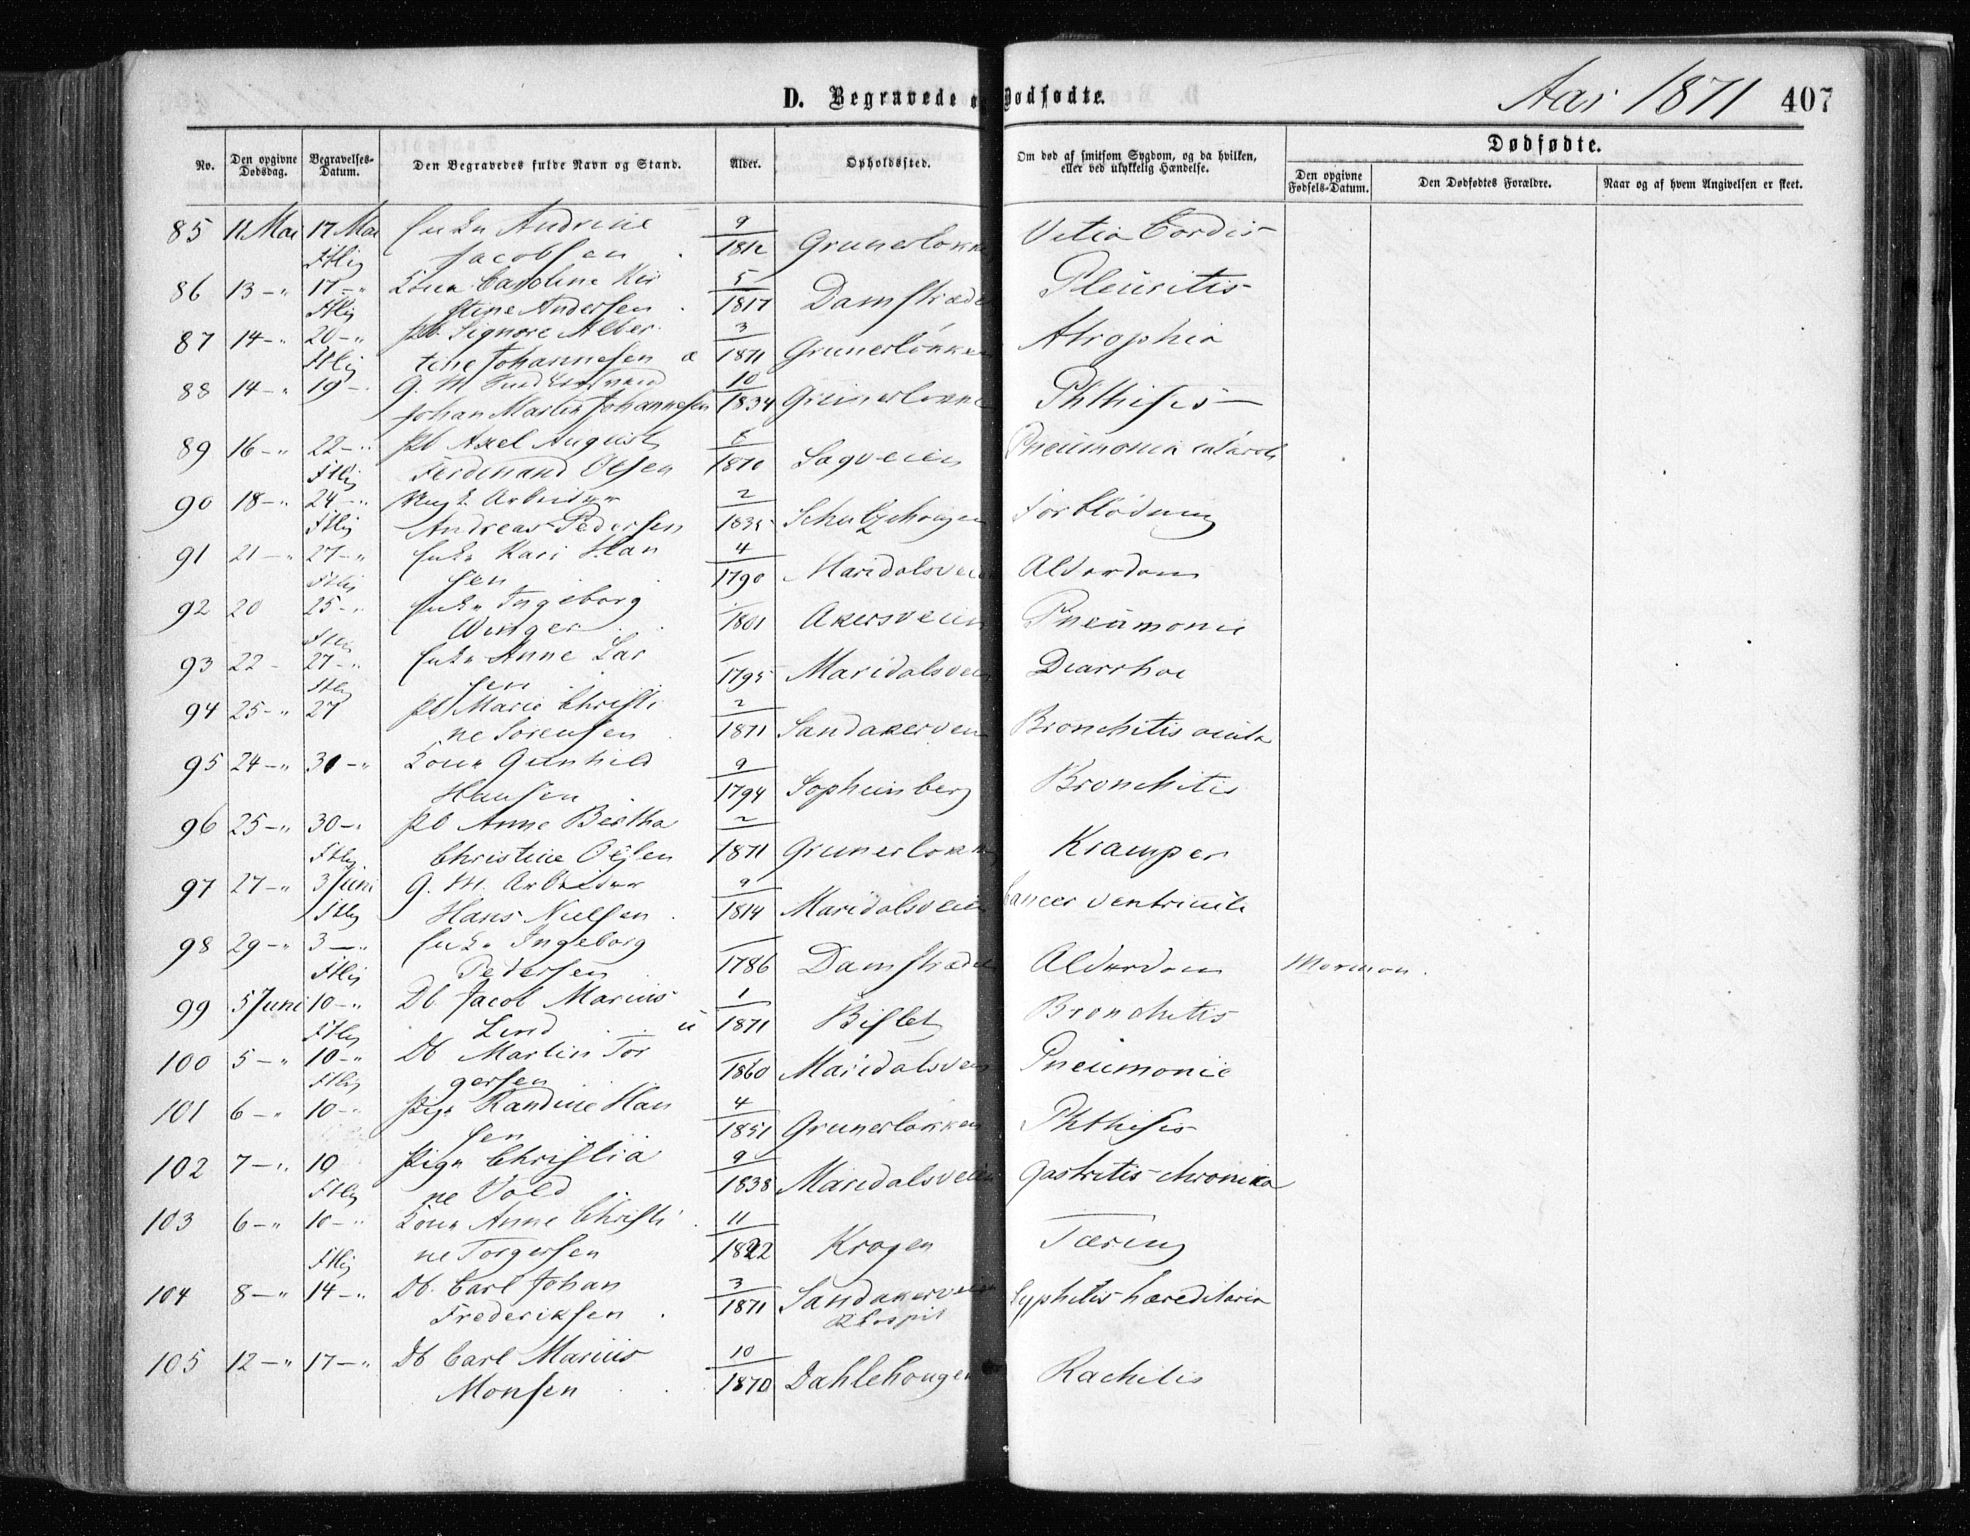 D. Begravede og Dødfødte.
Aar 1871
407
No.
Den opgivne Dødsdag.
Begravelses-Datum.
Den Begravedes fulde Navn og Stand.
Alder.
Opholdssted.
Om død af smitsom Sygdom, og da hvilken, eller ved ulykkelig Hændelse.
Dødfødte.
Den opgivne Fødsels-Datum.
Den Dødfødtes Forældre.
Naar og af hvem Angivelsen er skeet.
85 11 Mai 17 Mai Enke Andrine 9 Vitia Cordis
Jacobsen 1812 Grunerløkke
86 13 – " 17 – " Kone Caroline Kir 5 Pleuritis
stine Andersen 1817 Damstræde
87 14 – " 20 – " Pb. Signore Alber 3 Atrophia
tine Johannesen 1871 Grunerløkken
88 14 – " 19 – G. M. 10 Phthisis
Johan Martin Johannesen 1834 Grünerløkke
89 16 – " 22 – " Pb Axel August 6 Pneumonia
Ferdinand Olsen 1870 Sagveien
90 18 – " 24 – " Ung k. Arbeider 2 Forblødning
Andreas Pedersen 1835 Schultzehougen
91 21 – " 27 – " Enke Kari Han 4
sen 1790 Maridalsveien Alderdom
92 20 25 – " Enke Ingeborg
Winger 1801 Akersveien Pneumonie
93 22 – 27 – " Enke Anne Lar
sen 1795 Maridalsveien Diarrhoe
94 25 – " 27 Pb Marie Christi 2
ne Sørensen 1871 Sandakervein Bronchitis acuta
95 24 – " 30 – " Kone Gunhild 9
Hansen 1794 Sopheinberg Bronchitis
96 25 – " 30 – " Pb Anne Bertha 2
Christine Olsen 1871 Grunerløkke Kramper
97 27 – " 3 Juni G. M. Arbeider 9
Hans Nielsen 1814 Maridalsveien Cancer ventriculi
98 29 – " 3 – " Enke Ingeborg
Pedersen 1786 Damstræde Alderdom Mormon.
99 5 Juni 10 – " Db. Jacob Marius 1
Lind u 1871 Bislet Bronchitis
100 5 – " 10 – " Db Martin Tor
gersen 1860 Maridalsvein Pneumonie
101 6 – " 10 – " Pige Randine Han 4
sen 1851 Grunerløkken Phthisis
102 7 – " 10 Pige Christia 9
ne Vold 1838 Maridalsveien Gastritis chronica
103 6 – " 10 – " Kone Anne Christi 11
ne Torgersen 1822 Krogen Tæring
104 8 – " 14 – " Db. Carl Johan 3
Frederiksen 1871 Sandakerveien Syphilis hæreditaria
105 12 – " 17 – " Db Carl Marius 10
Monsen 1870 Dahlehougen Rachitis